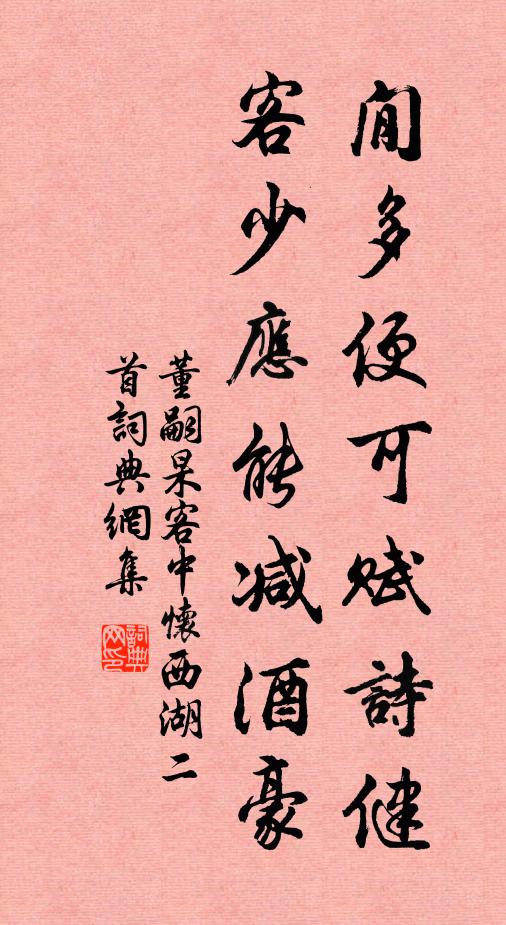 閒多便可賦詩健
客少應能減酒豪
董嗣杲客中懷西湖二
首詞典網集
詞典网印